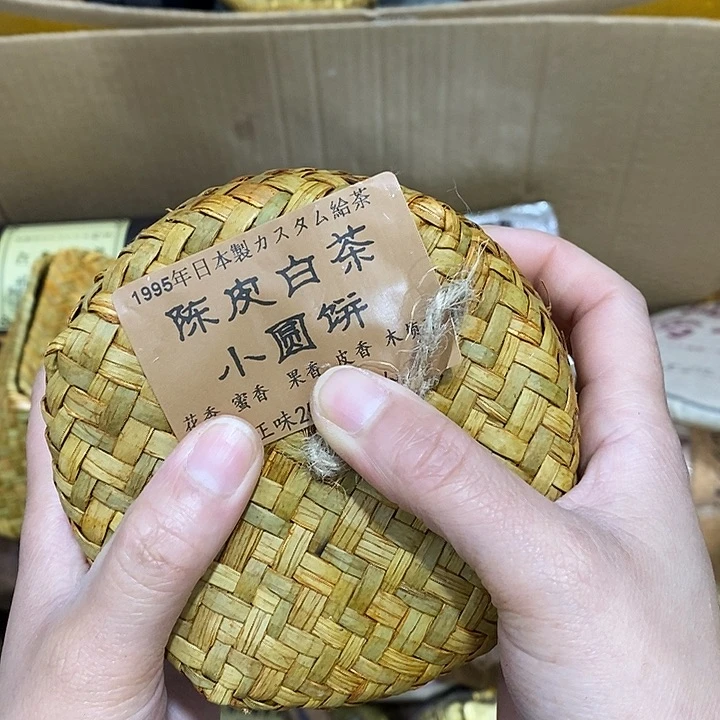 1995年日本製カスタム給茶
陈皮白茶
小圆饼
花香 蜜香 果香 皮香 木质
正味2